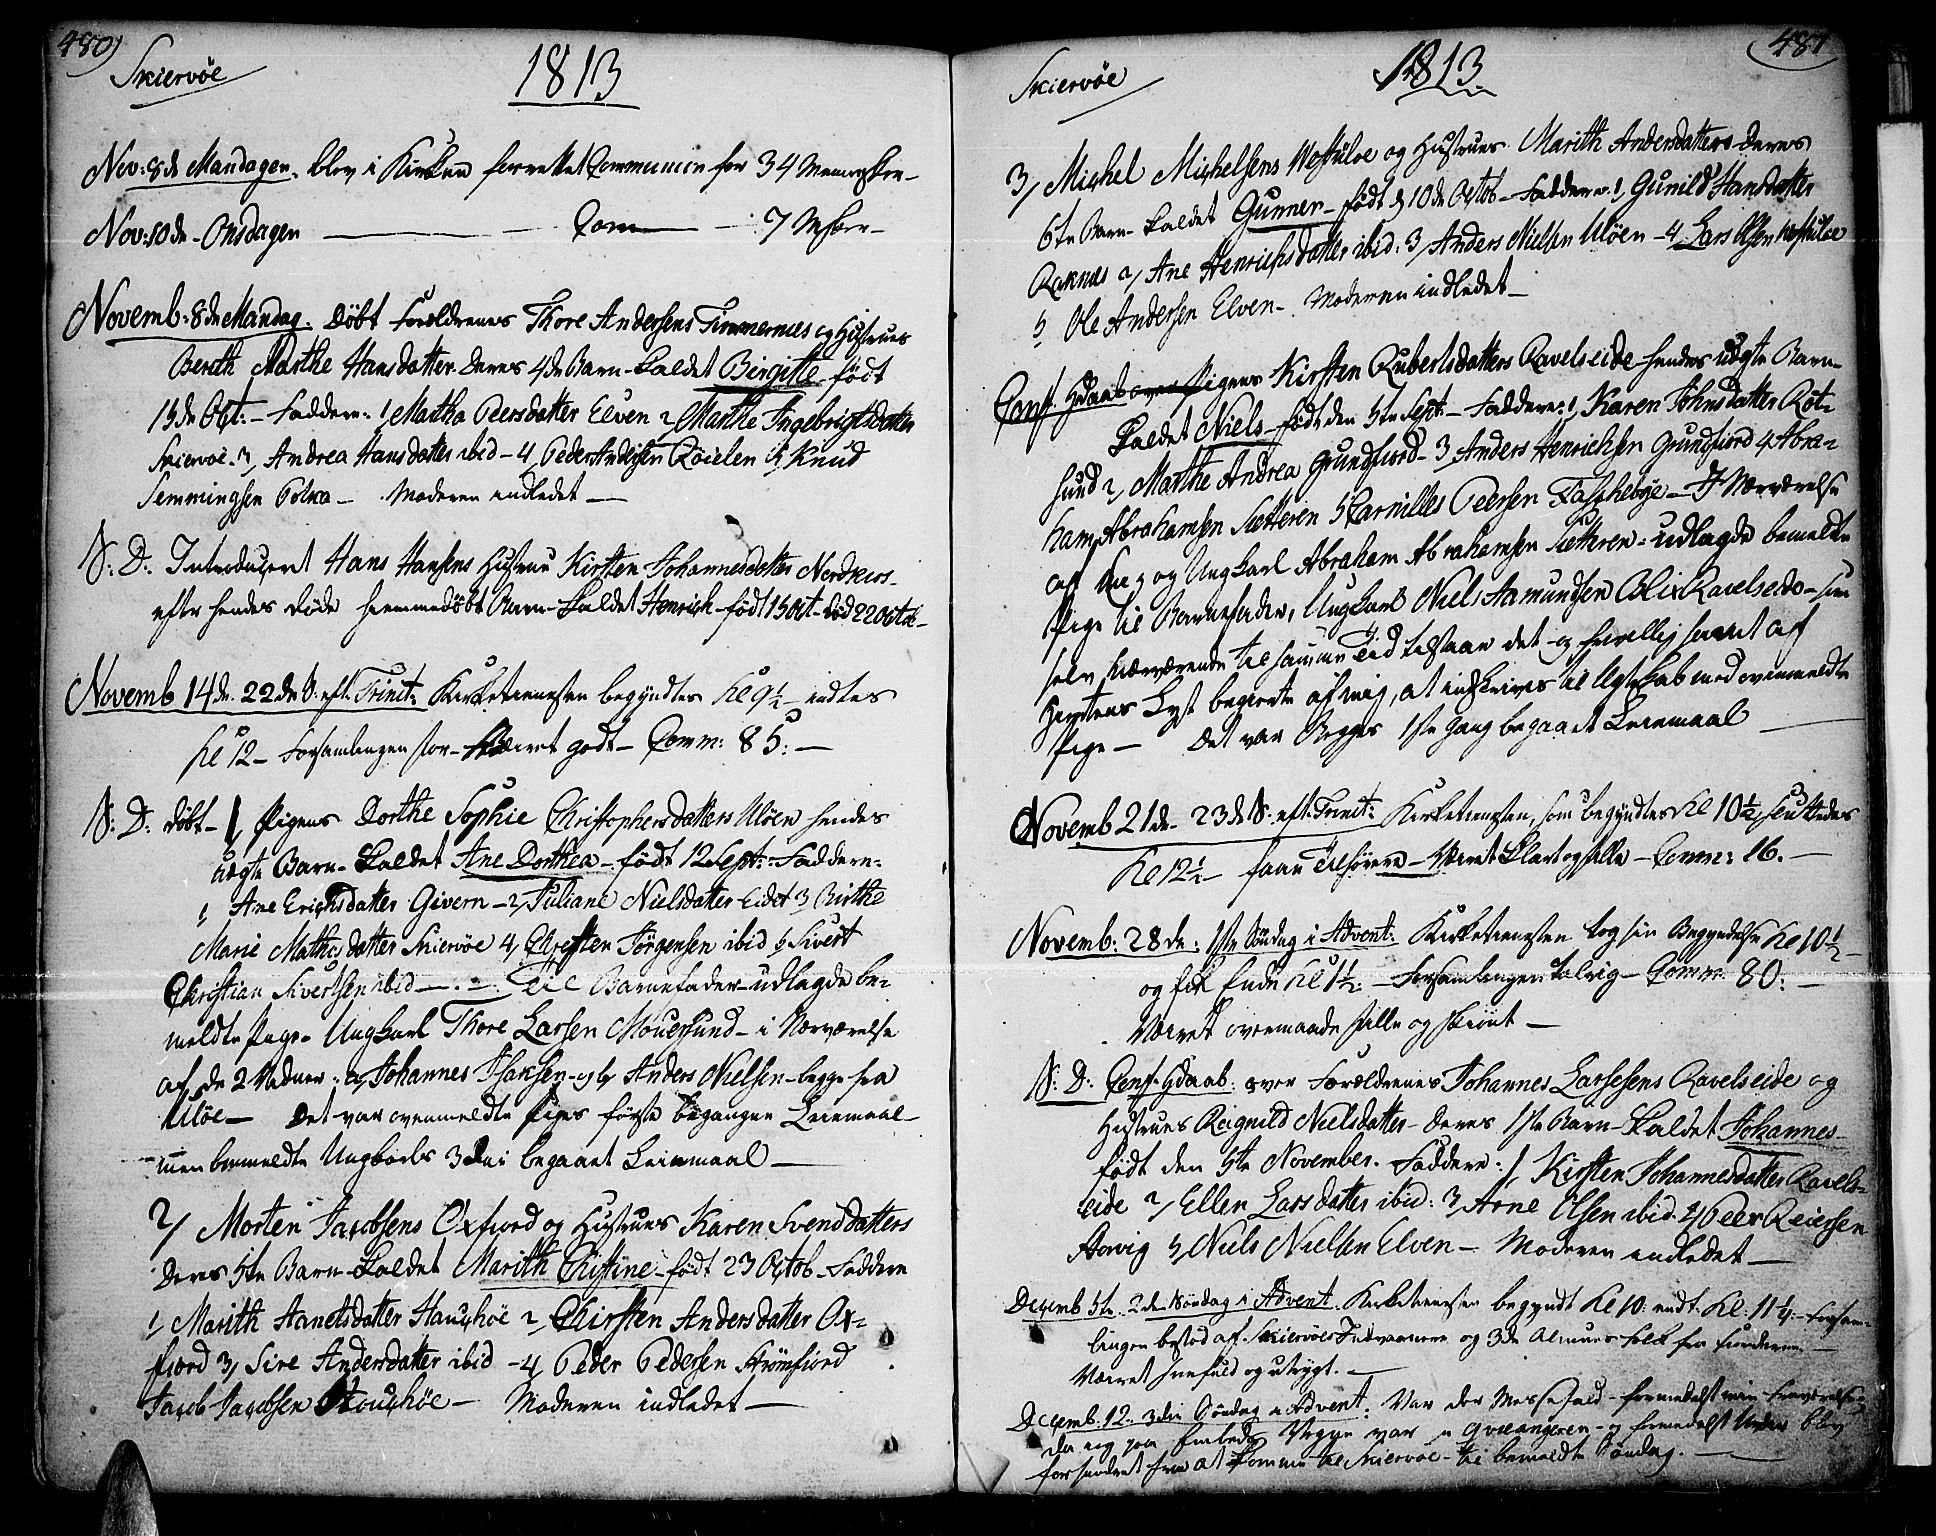 480)
Skiervöe
1813
Nov: 8de Mandagen. blev i Kirken forrettet Communion for 34 Mennesker-
Nov: 10de - Onsdagen - Com - 7 Msker-
Novemb: 8de Mandag. Døbt Forældrenes Thore Andersens Timmernæs og Hustrues
Bereth Marthe Hansdatter deres 4de Barn - Kaldet Birgitte - født
15de Oct: - Faddere: 1, Martha Peersdatter Elven 2, Marthe Ingebrigtsdatter
Skiervöe. 3, Andrea Hansdatter ibid - 4, Peder Andersen Röielen 5, Knud
Semmingsen Polma - Moderen indledet -
S: D: Introduceret Hans Hansens Hustrue Kirsten Johannesdatter Nordkios-
efter hendes døde hiemmedöbt Barn - Kaldet Henrich - født 15 Oct - død 22 Octob-
Novemb 14de. 22de S: eft. Trinit: Kirketienesten begyndtes Kl 9½ - endtes
Kl 12 - Forsamlingen stor - Væiret godt - Comm: 85: -
S: D: døbt - 1, Pigens Dorthe Sophie Christophersdatters Uløen hendes
uægte Barn - Kaldet Ane Dorthea - født 12 Sept: - Faddere:
1, Ane Erichsdatter Givern - 2, Juliane Nielsdatter Eidet 3, Birthe
Marie Mathesdatter Skiervöe 4, Christen Jörgensen ibid 5 Sivert
Christian Sivertsen ibid - Til Barnefader udlagde be-
meldte Pige - Ungkarl Thore Larsen Mouersund - i Nærværelse
af de 2 Vidner: a, Johannes Isaksen - og b, Anders Nielsen - begge fra
Uløe - Det var ovenmeldte Piges første begangen Leiermaal -
men bemeldte Ungkarls 3die begaaet Leiermaal -
2/ Morten Jacobsens Oxfiord og Hustrues Karen Svendsdatters
deres 5te Barn - Kaldet Marith Christine - født 23 Octob - Faddere
1, Marith Hanetsdatter Hauchöe 2, Chirsten Andersdatter Ox-
fiord 3, Sire Andersdatter ibid - 4, Peder Pedersen Strömfiord
Jacob Jacobsen Houchöe - Moderen indledet -
481
Skiervöe
1813
3, Michel Michelsens Mostuloe og Hustrues Marith Andersdatters deres
6te Barn - Kaldet Gunner - født d 10de Octob - Faddere: 1, Gunild Hansdatter
Raknæs 2, Ane Henrichsdatter ibid: 3, Anders Nielsen Uløen - 4, Lars Olsen
5 Ole Andersen Elven - Moderen indledet -
Conf. Hdaab over Pigens Kirsten Rubertsdatters Ravelseide hendes uægte Barn -
Kaldet Niels - født den 5te Sept: - Faddere: 1, Karen Johnsdatter Röt-
sund 2, Marthe Andrea Grundfiord - 3, Anders Henrichsen Grundfiord 4, Abra-
ham Abrahamsen Sletteren 5 Carnilles Peersen Taschebye - I Nærværelse
af mig og Ungkarl Abraham Abrahamsen Sletteren - udlagde bemeldte
Pige til Barnefader, Ungkarl Niels Aamundsen Blix Ravelseide - som
selv nærværende til samme Tid tilstaar det og frivillig samt af
Hiertens Lyst begierte af mig, at indskrives til Ægteskab med ovenmeldte
Pige - Det var Begges 1ste Gang begaaet Leiermaal -
Novemb 21de - 23de S: eft. Trinit: Kirketienesten, som begyndtes Kl 10½, sluttedes
Kl 12½ - faae Tilhörere - Væiret Klart og stille - Comm: 16. -
Novemb: 28de: 1ste Söndag i Advent: Kirketienesten tog sin Begyndelse Kl 10½ -
og fik Ende Kl 1½: - Forsamlingen talrig - Comm: 80: -
Væiret overmaade stille og skiönt -
S: D: Conf. Hdaab: over Forældrenes Johannes Larsesens Ravelseide og
Hustrues Ragnild Nielsdatter - deres 1ste Barn - Kaldet Johannes -
født den 5te November. Faddere: 1, Kirsten Johannesdatter Ravels-
eide 2, Ellen Larsdatter ibid: 3, Arne Olsen ibid. 4, Peer Reiersen
Aarvig 5, Niels Nielsen Elven - Moderen indledet -
Decemb 5te. 2den Söndag i Advent. Kirketienesten begyndt Kl 10: endt. Kl: 11¼ - Forsam-
lingen bestod af Skiervöes Indvaanere og 3de Almues folk fra Fiorderne. -
Væiret snefuld og utrygt. -
Decemb. 12. 3die Söndag i Advent. Var der Messefald - formedelst min Fraværelse
da jeg paa Embeds Vegne var i Qvænangeren - og formedelst Uveir blev
forhindret fra at komme til Skiervöe - til bemeldte Söndag. -